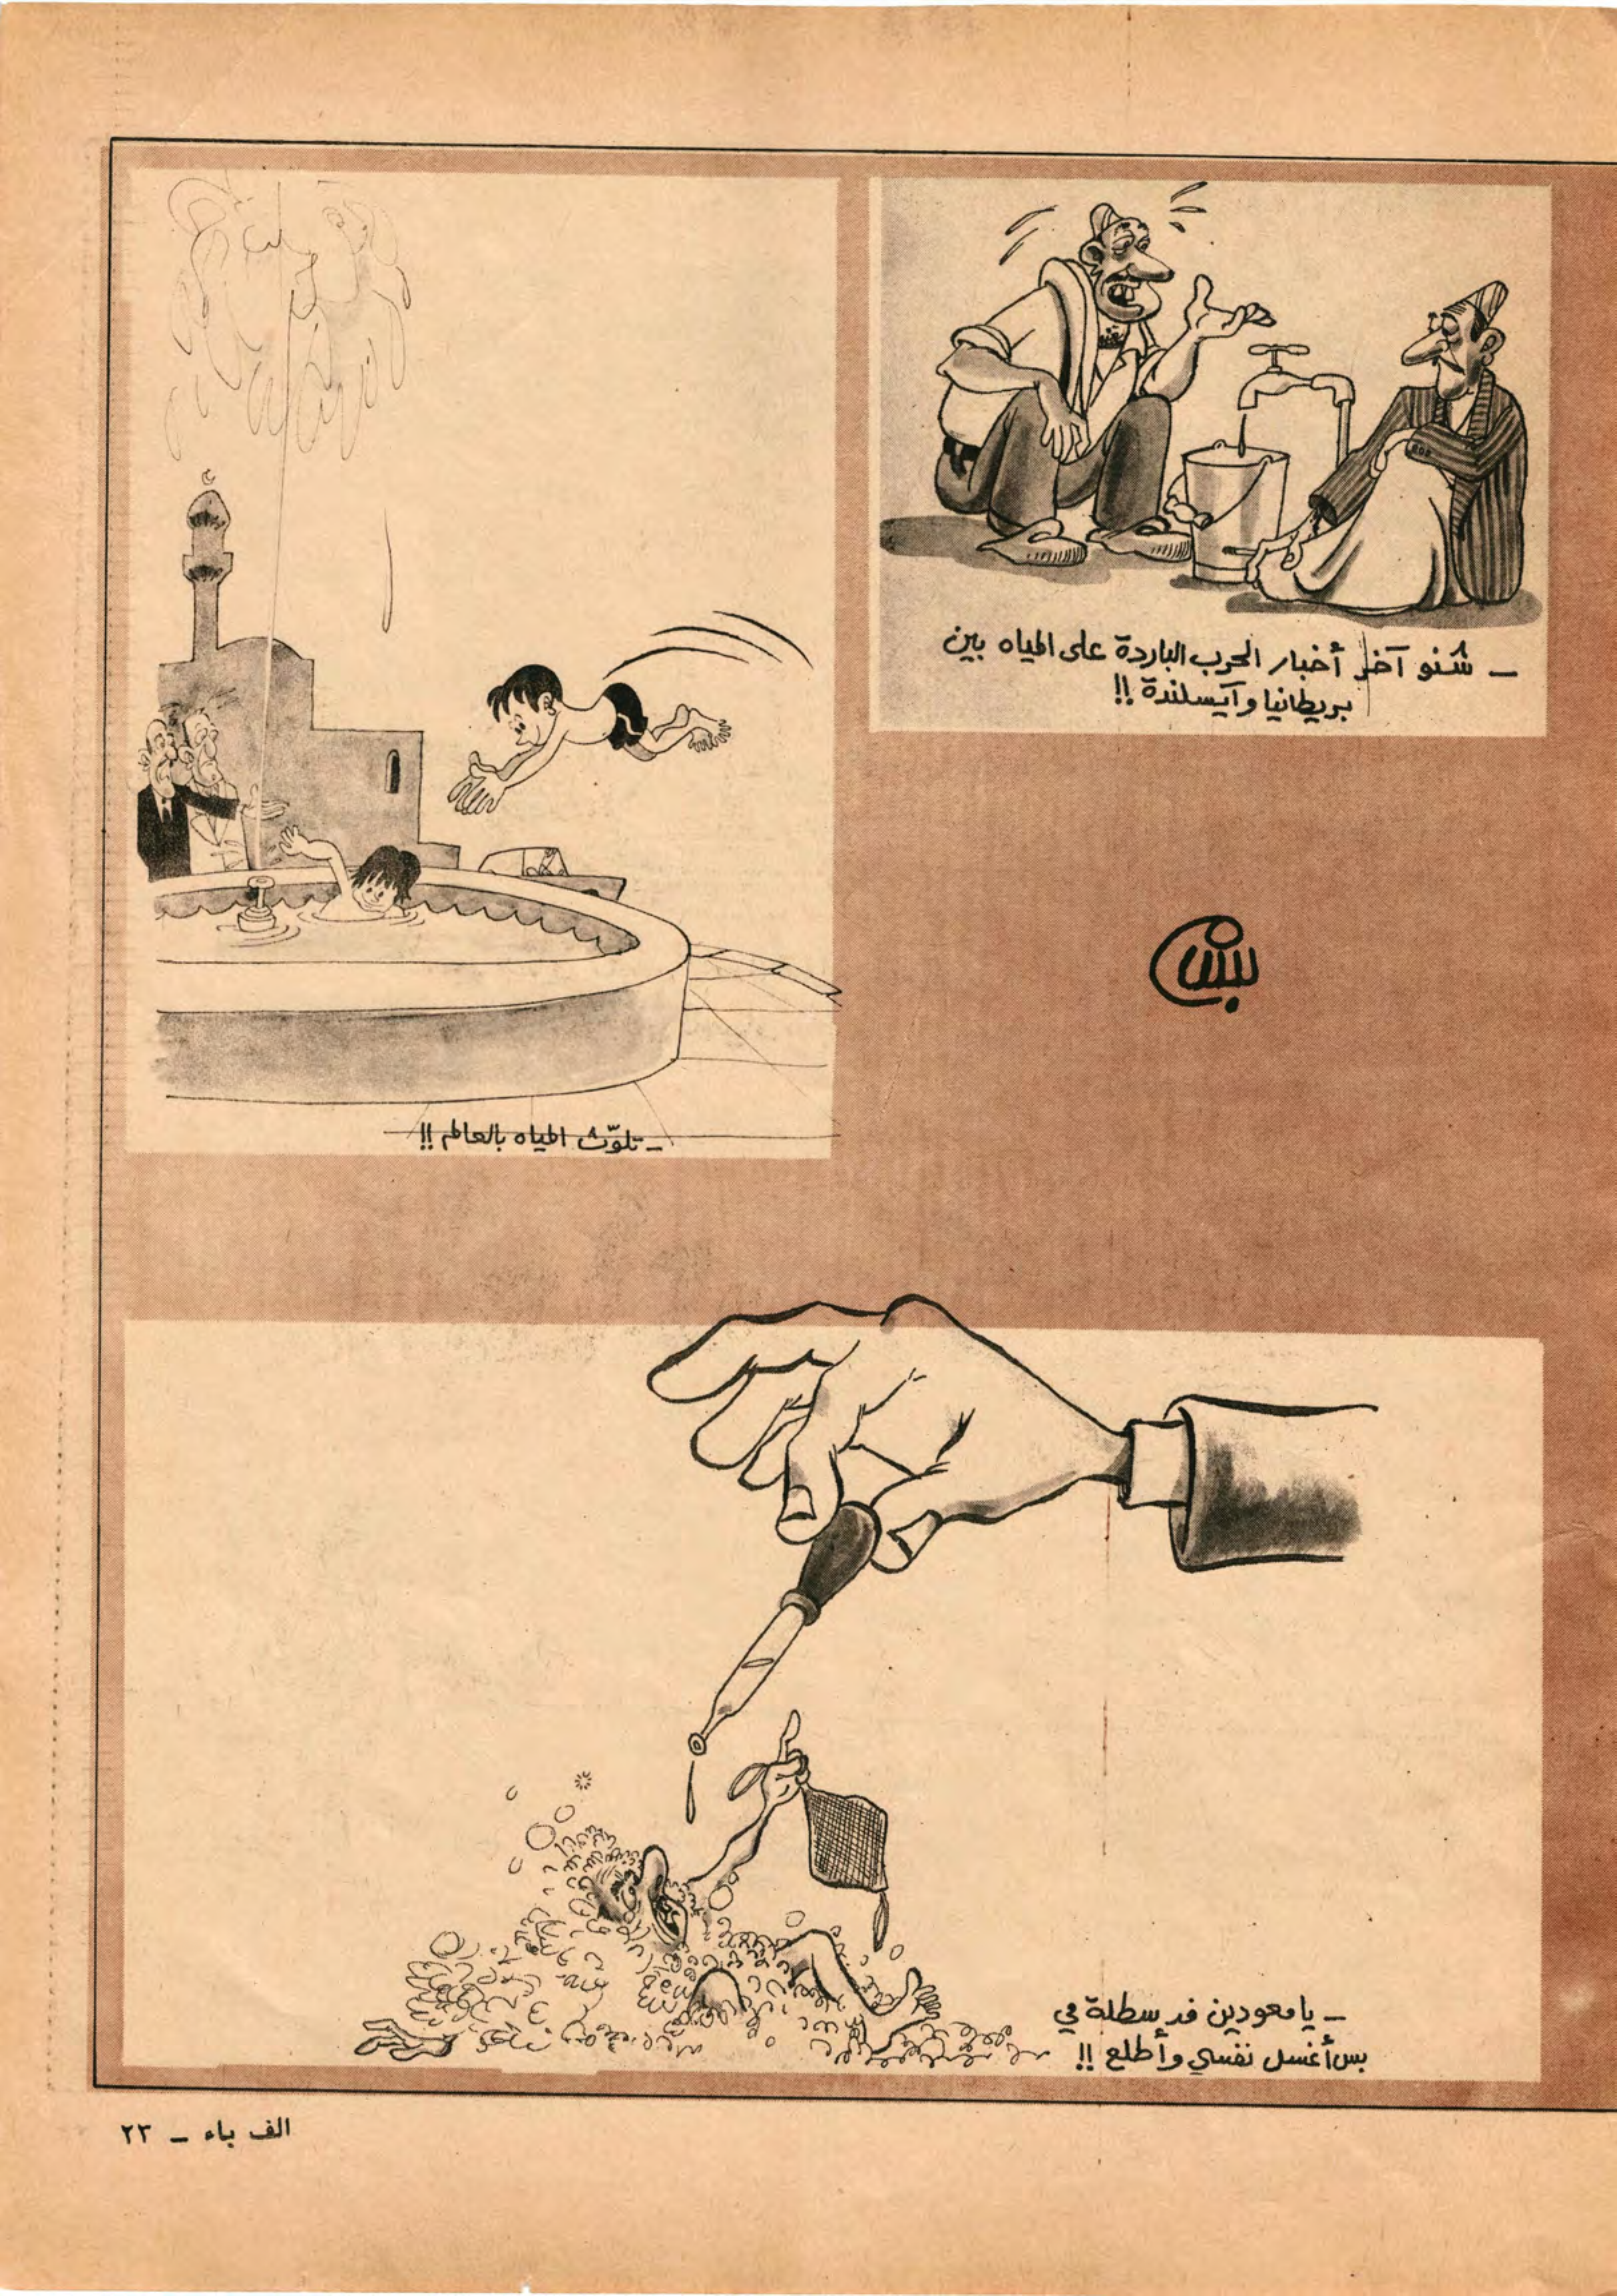 ـ شنو آخر أخبار الحرب الباردة على المياه بين
بريطانيا وآيسلندة !!
ـ تلوّث المياه بالعالم !!
بس
ـ يا معودين فد سطلة مي
بس أغسل نفسي وأطلع !!
الف باء ـ ٢٣